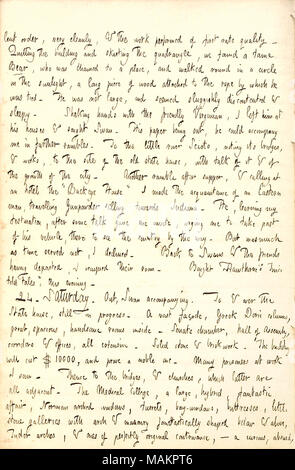 lent order, very cleanly & the work performed of first rate quality.
Quitting the building and skirting the quadrangle, we found a tame
Bear, who was chained to a place, and walked round in a circle
in the sunlight, a long piece of wood attached to the rope by which he
was tied. He was not large, and seemed sluggishly discontented &
sleepy. Shaking hands with the friendly Virginian, I left him at
his house & sought Swan. His paper being out, he could accompany
me in further rambles. To the little river Scioto, noting its bridges
& works, to the site of the old state house, with talk of it & of
the growth of the city. Another ramble after supper, & calling at
an hotel the "Buckeye House" I made the acquaintance of an Eastern
man, travelling Gunpowder selling towards Indiana. He, learning my
destination, after some talk gave me invite, urging me to take part
of his vehicle, there to see the country by the way. But inasmuch
as time served not, I declined. Back to Swan's & then friends
having departed, I occupied their room. Bought Hawthorne's twice
told tales this evening.
24. Saturday. Out, Swan accompanying. To & over the
State house, still in progress. A vast façade, Greek Doric columns,
great, spacious, handsome rooms inside. Senate chamber, hall of Assembly,
corridors & offices, all extensive. Solid stone & brick work. The building
will cost $ 10000, and prove a noble one. Many prisoners at work
I saw. Thence to the bridges & churches, which latter are
all adjacent. The Medical College, a large, hybrid fantastic
affair, Norman arched windows, turrets, bay-windows, buttresses, little
stone galleries with arch & masonry fantastically shaped below & above,
Tudor arches, & one of perfectly original contrivance, — a curious, absurd,
alamy
Image ID: MAKPT6
www.alamy.com